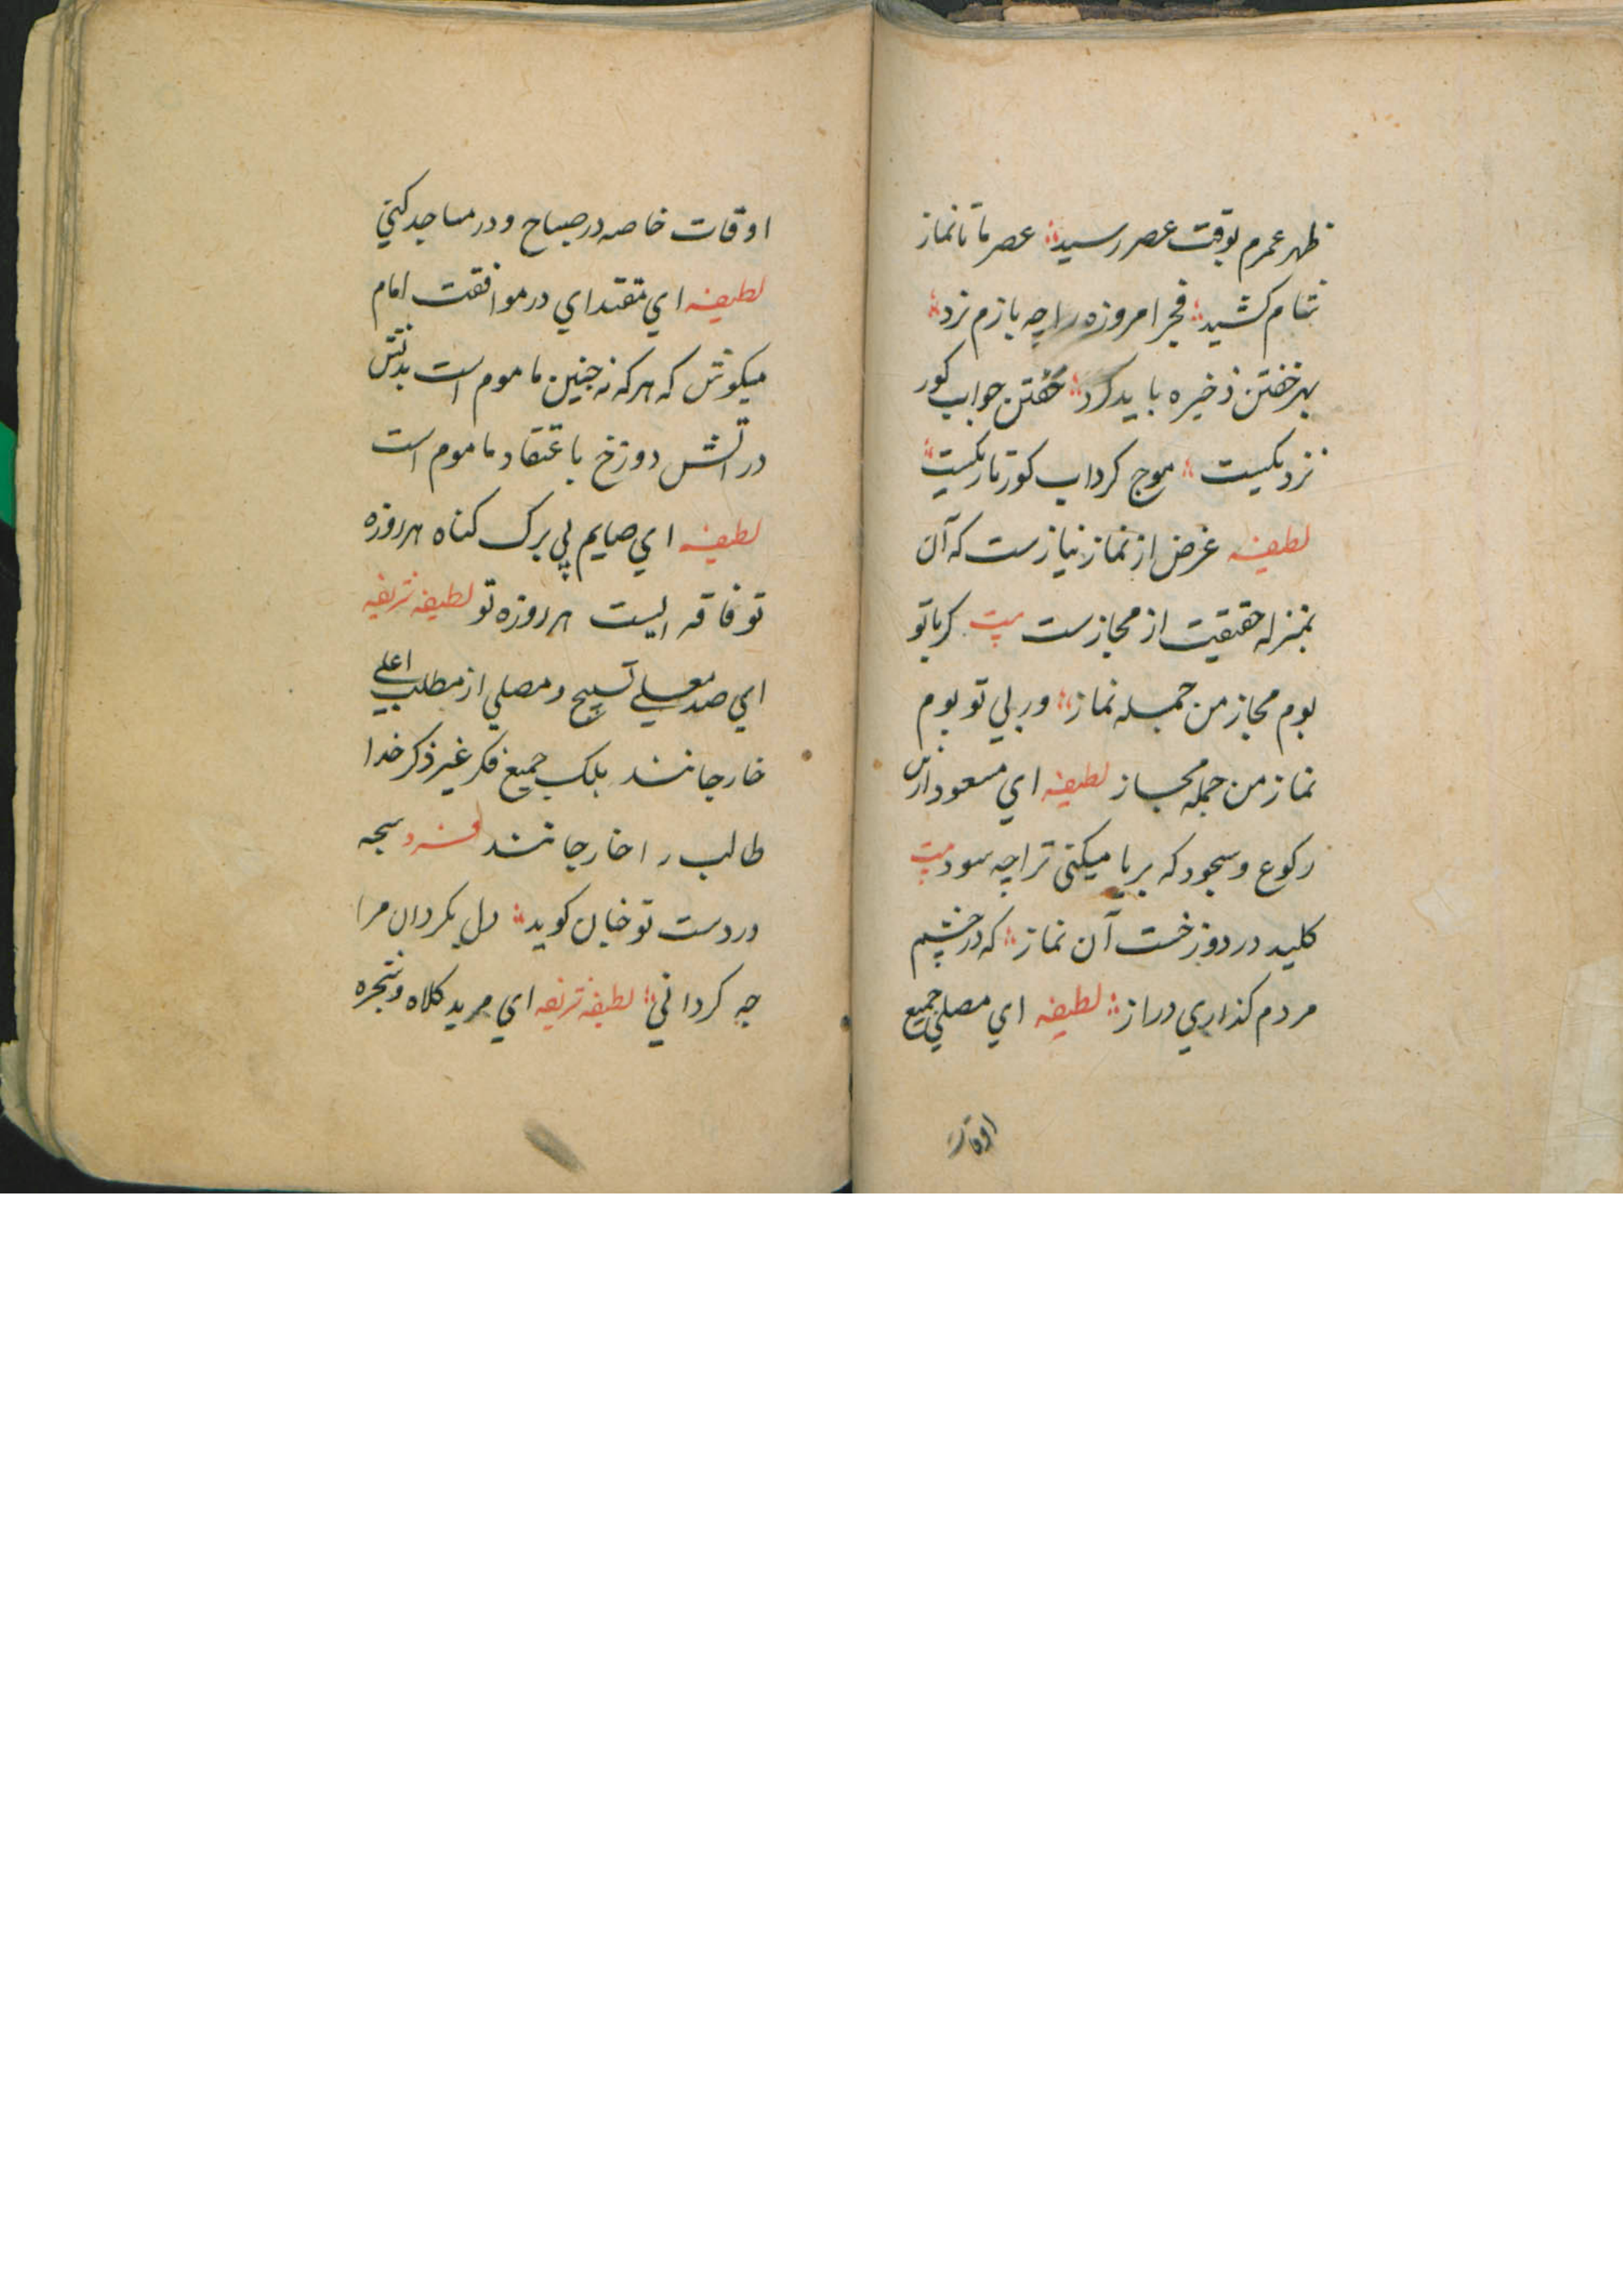 ظهر عمرم بوقت عصر رسید؛ عصر ما تا نماز
شام کشید؛ فجر امروزه را چه بازم نزد؛
بهر خفتن ذخیره باید کرد؛ خفتن جواب کور
نزدیکست؛ موج کرداب کور تاریکست؛
لطیفه غرض از نماز نیازست که آن
بمنزله حقیقت از مجازست بیت کر با تو
بوم مجاز من جمله نماز؛ ور بی تو بوم
نماز من جمله مجاز لطیفه ای مسعود ازین
رکوع و سجود که بریا میکنی ترا چه سود بیت
کلید در دوزخست آن نماز؛ که در چشم
مردم کذاری دراز؛ لطیفه ای مصلی جمیع
اوقات
اوقات خاصه در صباح و در مساجد کنی
لطیفه ای مقتدای در موافقت امام
میکوش که هر که نه چنین ماموم است بدنش
در آتش دوزخ باعتقاد ما موم است
لطیفه ای صایم بی برک کناه هر روزه
تو فاقه ایست هر روزه تو لطیفه شریفه
ای صد معلی تسبیح و مصلی از مطلب اعلی
خارجانند بلک جمیع فکر غیر ذکر خدا
طالب را خارجانند فرد سبحه
در دست تو خیان کوید؛ دل بکردان مرا
چه کردانی؛ لطیفه شریفه ای مرید کلاه و شجره